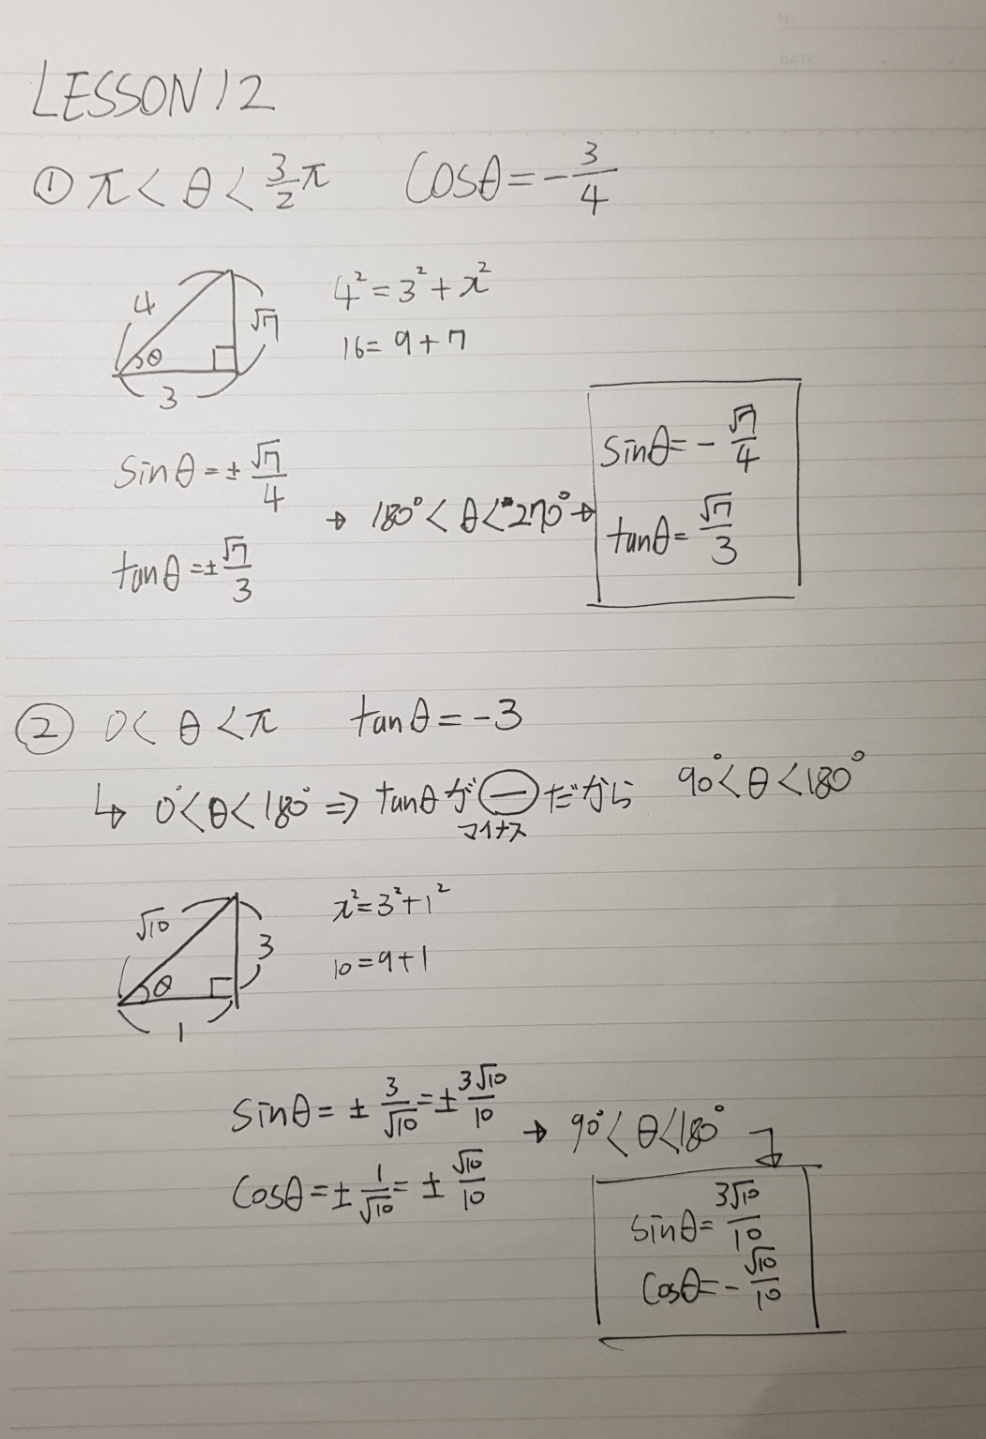 LESSON 12
① π < θ < 3/2 π   cosθ = -3/4
4² = 3² + x²
4 √7
16 = 9 + 7
θ
3
sinθ = ± √7/4
tanθ = ± √7/3
→ 180° < θ < 270° →
sinθ = - √7/4
tanθ = √7/3
② 0 < θ < π   tanθ = -3
↳ 0° < θ < 180° ⇒ tanθが⊖だから 90° < θ < 180°
マイナス
√10 3
x² = 3² + 1²
10 = 9 + 1
θ
1
sinθ = ± 3/√10 = ± 3√10/10
cosθ = ± 1/√10 = ± √10/10
→ 90° < θ < 180°
sinθ = 3√10/10
cosθ = - √10/10